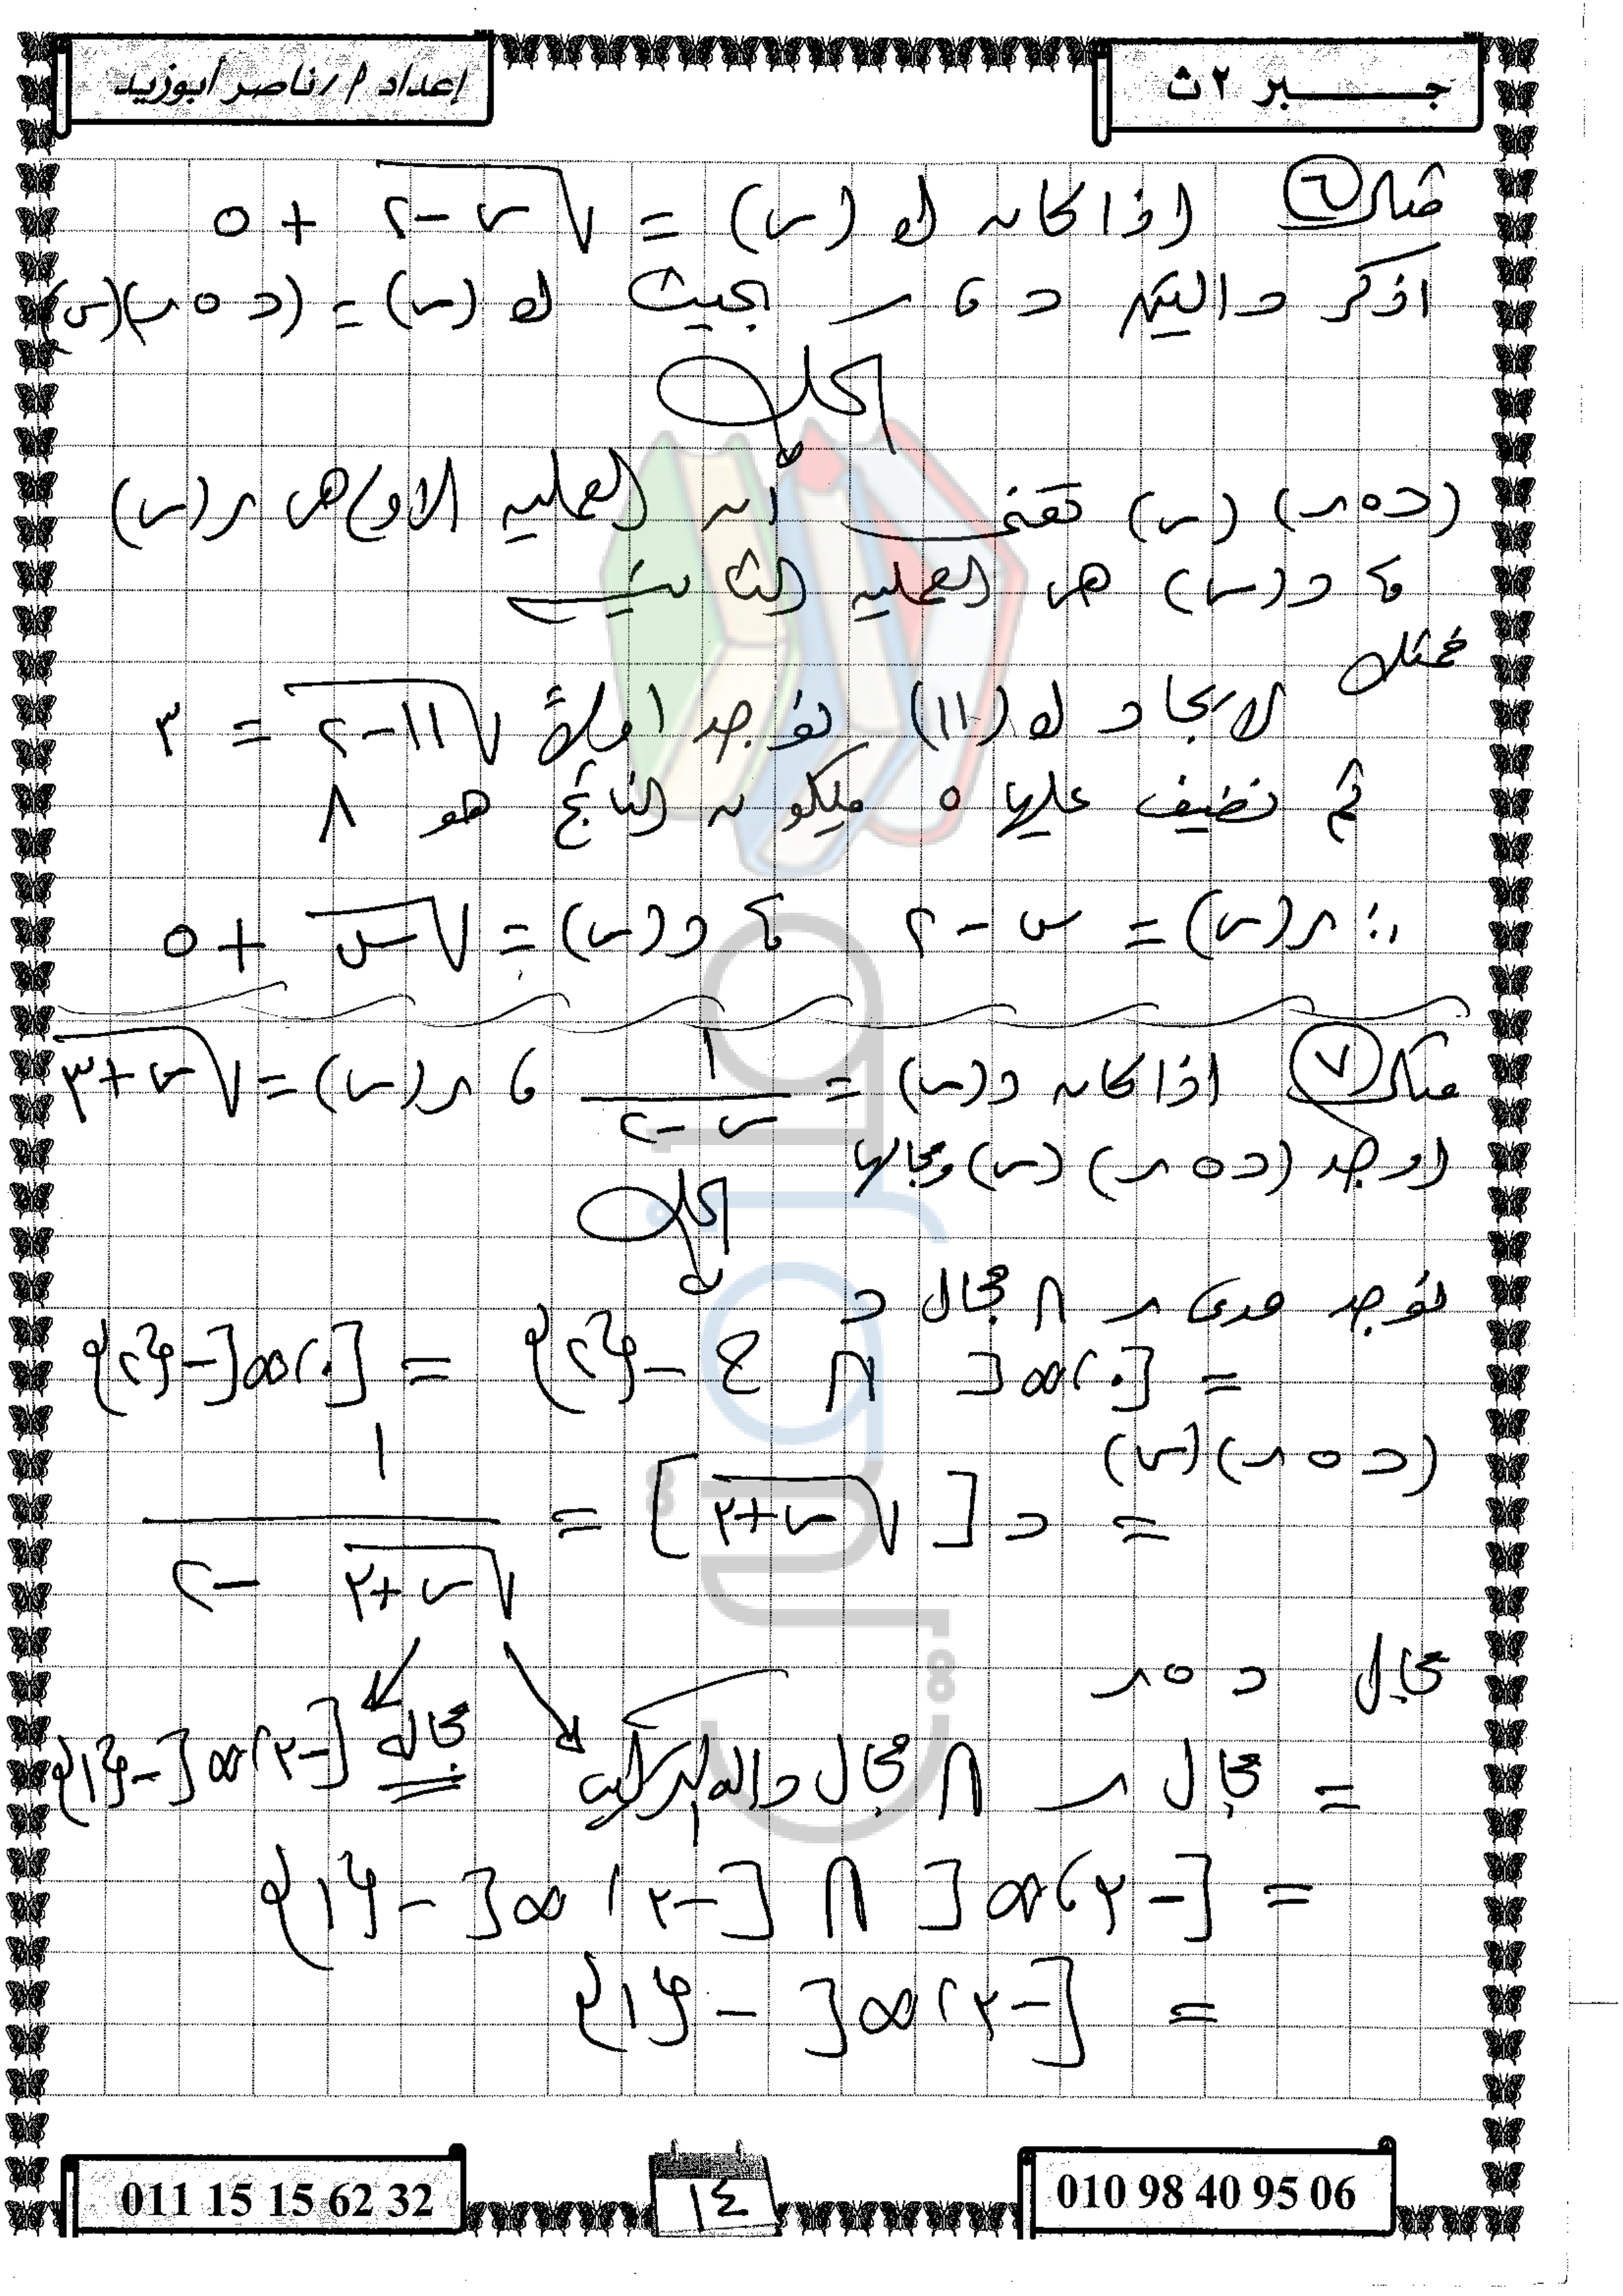 جـــبر ٢ ث
إعداد م / ناصر أبوزيد
مثال ٦ اذا كان ك (س) = √(س-٢) + ٥
اذكر دالتين د ، ر بحيث ك (س) = (د ∘ ر)(س)
الحل
(د ∘ ر) (س) تعنى أن العمليه الاولى هى ر(س)
، د(س) هى العمليه الثانية
فمثلا
لايجاد ك (١١) نوجد اولاً √(١١-٢) = ٣
ثم نضيف عليها ٥ فيكون الناتج هو ٨
∴ ر(س) = س - ٢ ، د(س) = √س + ٥
مثال ٧ اذا كان د(س) = ١/(س-٢) ، ر(س) = √(س+٣)
اوجد (د ∘ ر) (س) ومجالها
الحل
نوجد مدى ر ∩ مجال د
= [٠،∞[ ∩ ح - {٢} = [٠،∞[ - {٢}
(د ∘ ر)(س)
= د [√(س+٣)] = ١/(√(س+٣) - ٢)
مجال د ∘ ر
= مجال ر ∩ مجال داله التركيب مجاله [-٣،∞[ - {١}
= [-٣،∞[ ∩ [-٣،∞[ - {١}
= [-٣،∞[ - {١}
011 15 15 62 32
١٤
010 98 40 95 06